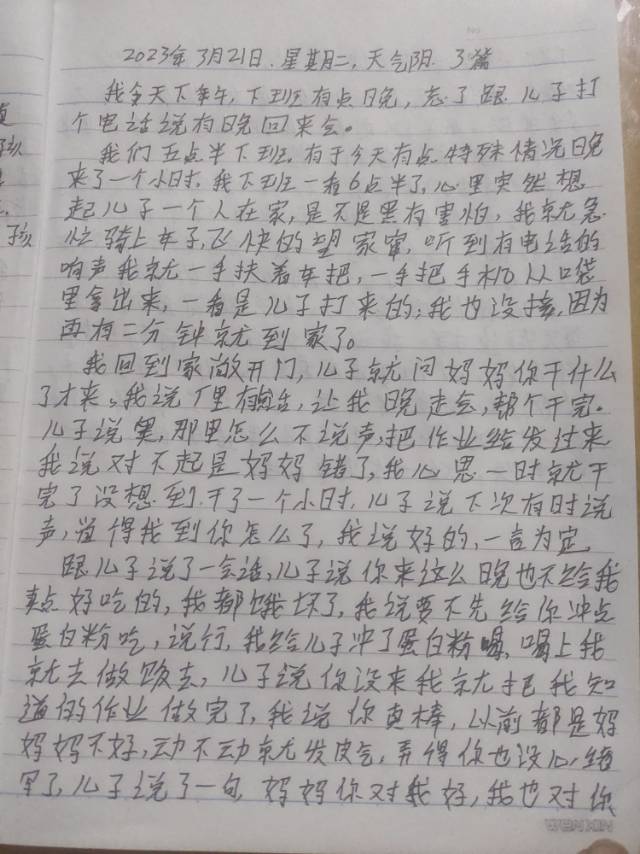 2023年3月21日.星期二,天气阴 3篇
我今天下午,下班有点晚,忘了跟儿子打
个电话说有晚回来会。
我们五点半下班,有于今天有点特殊情况晚
来了一个小时,我下班一看6点半了,心里突然想
起儿子一个人在家,是不是黑有害怕,我就急
忙骑上车子,飞快的望家窜,听到有电话的
响声我就一手扶着车把,一手把手机从口袋
里拿出来,一看是儿子打来的;我也没接,因为
再有二分钟就到家了。
我回到家敞开门,儿子就问妈妈你干什么
了才来。我说厂里有,让我晚走会,帮个干完。
儿子说奥,那里怎么不说声,把作业给发过来
我说对不起是妈妈错了,我心思一时就干
完了没想到.干了一个小时,儿子说下次有时说
声,省得找到你怎么了,我说好的,一言为定
跟儿子说了一会话,儿子说你来这么晚也不给我
卖点好吃的,我都饿坏了,我说要不先给你冲点
蛋白粉吃,说行,我给儿子冲了蛋白粉喝,喝上我
就去做饭去,儿子说你没来我就把我知
道的作业做完了,我说你真棒,以前都是妈
妈妈不好,动不动就发皮气,弄得你也没心绪
写了,儿子说了一句,妈妈你对我好,我也对你
WENXIN
孩
子孩